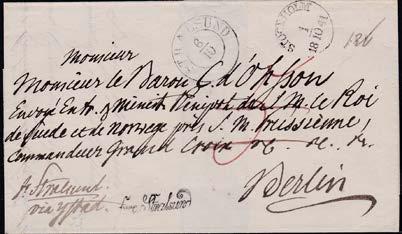 STRALSUND
8
10
STOCKHOLM
1
10
1841
Monsieur
Monsieur le Baron C. d'Ohsson
Envoyé Extr. & Minist. Plénipot. de S. M. le Roi
de Suède et de Norwege près S. M. Prussienne,
Commandeur Grand Croix &c. &c. &c.
Berlin
pr. Stralsund
via Ystad.
franco Stralsund